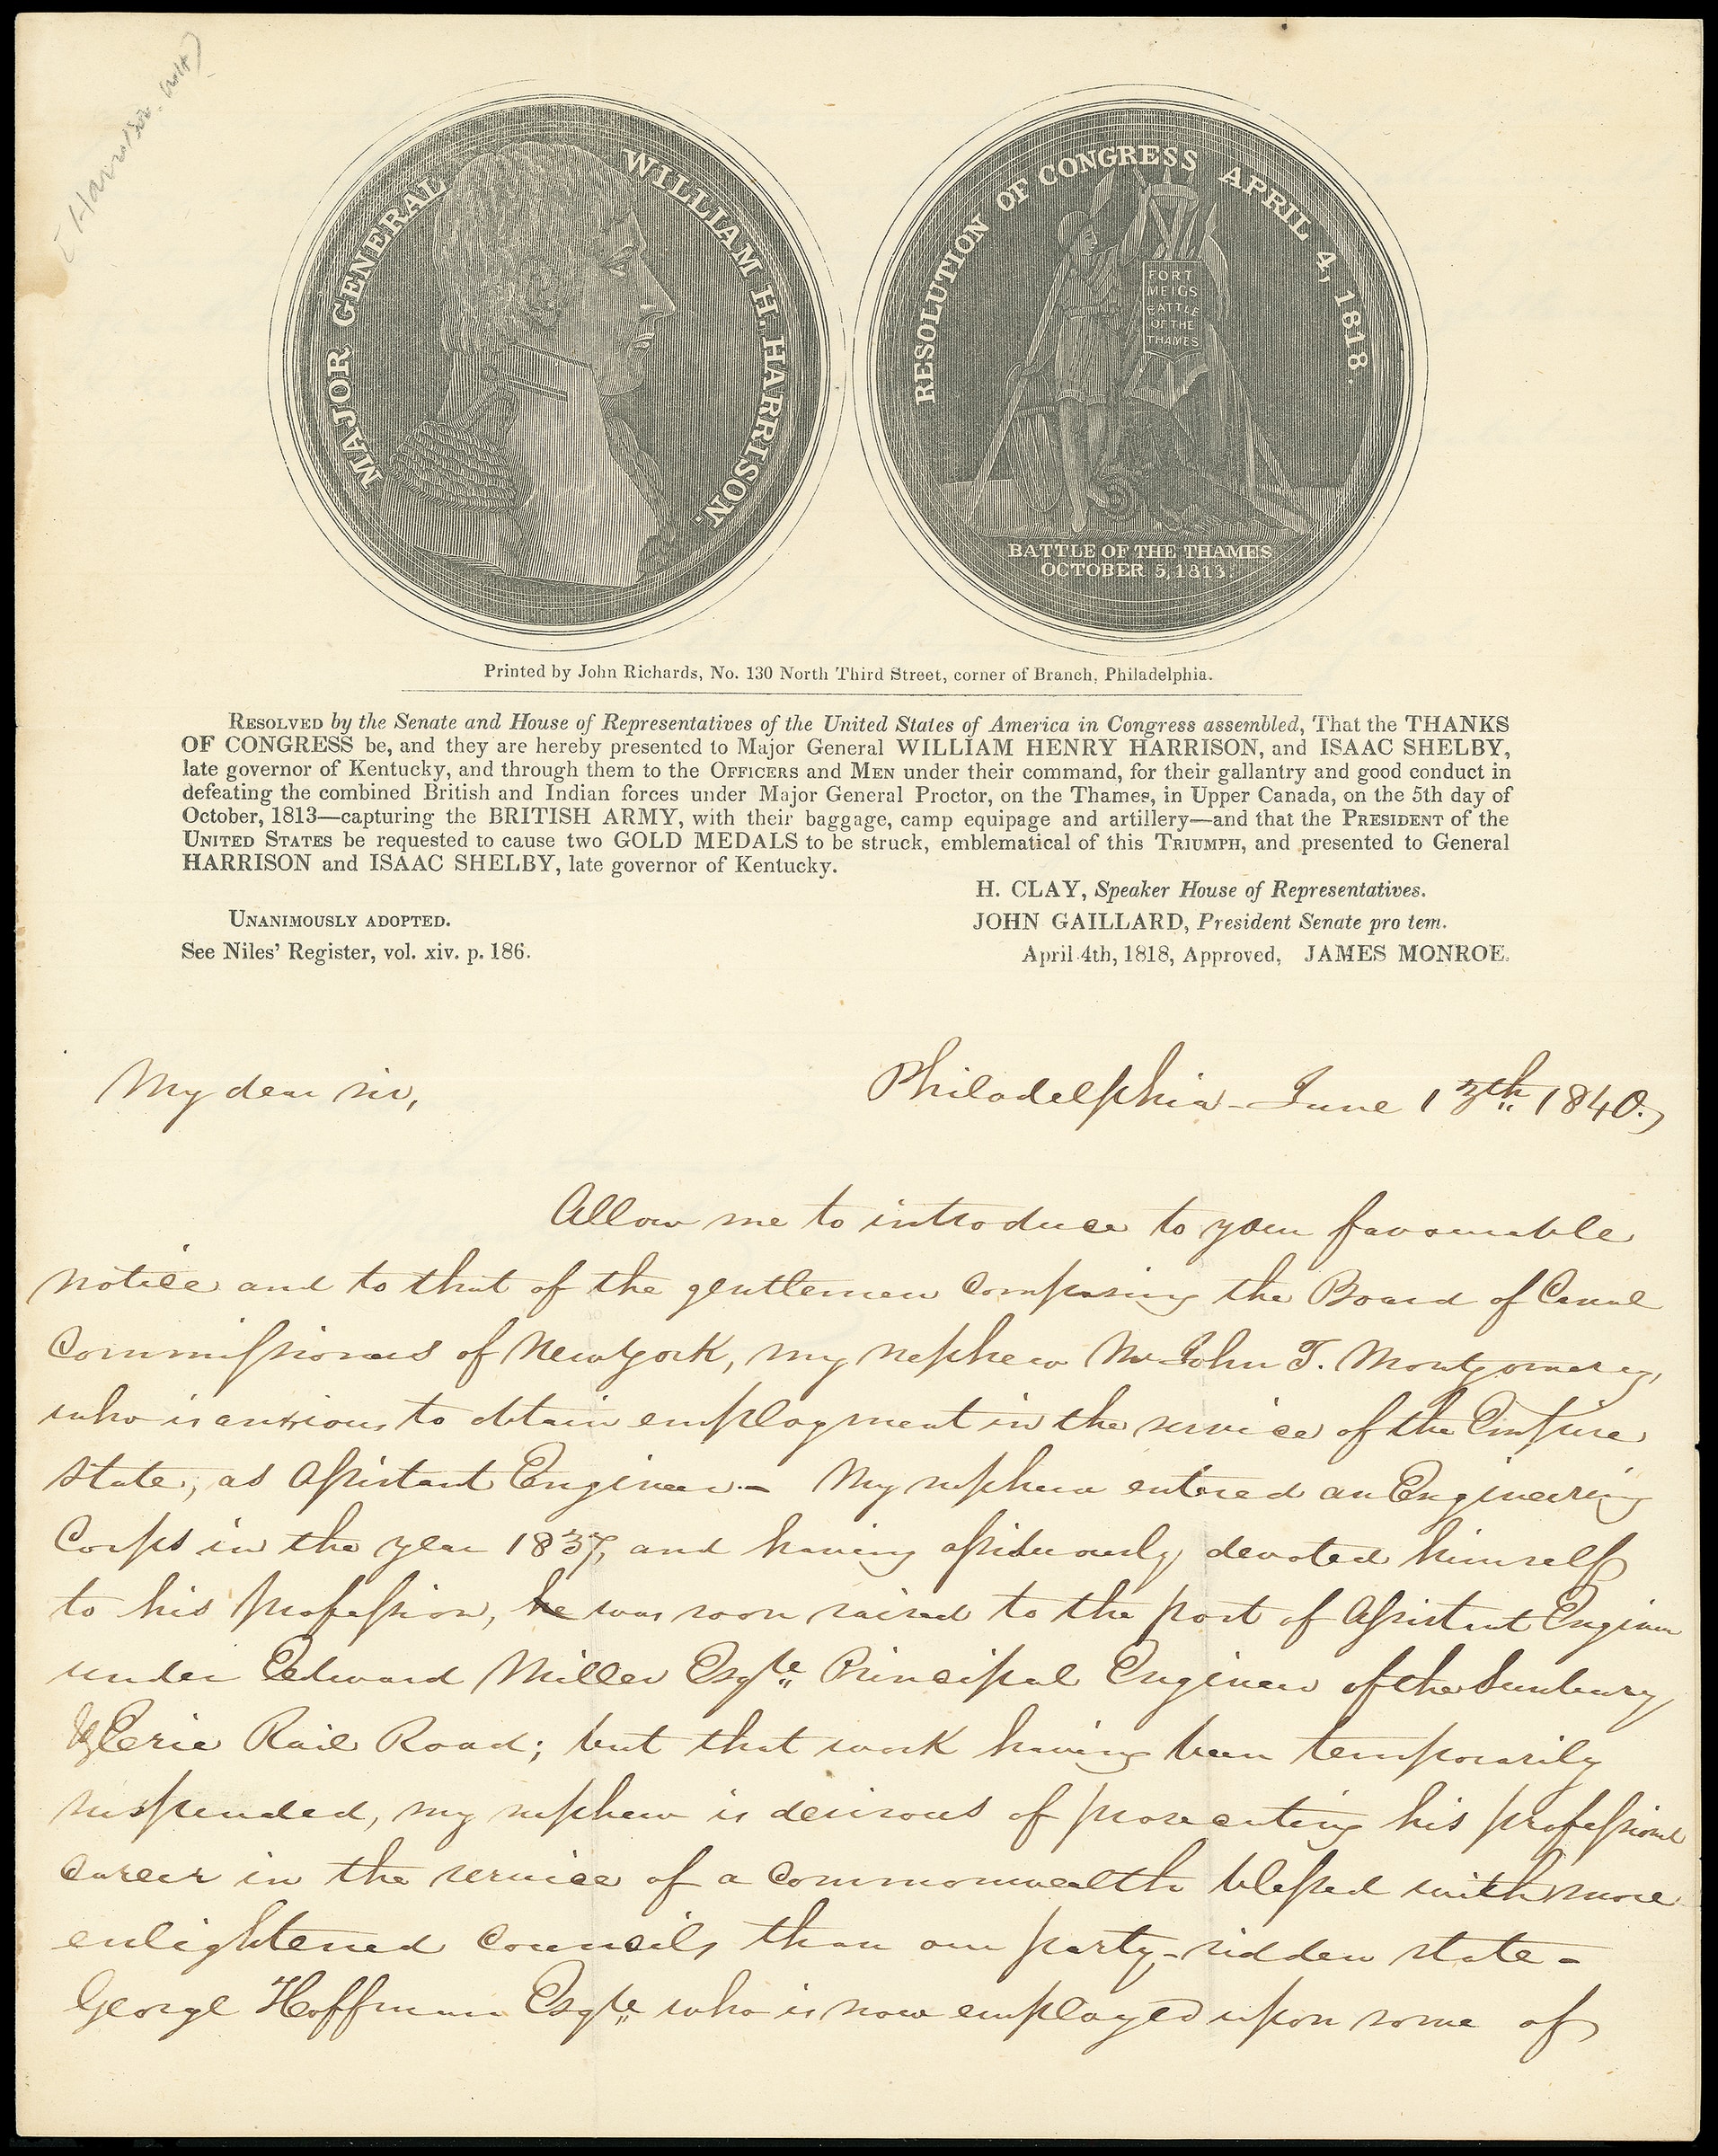 (Harrison, WH)
MAJOR GENERAL WILLIAM H. HARRISON.
RESOLUTION OF CONGRESS APRIL 4, 1818.
FORT
MEIGS
BATTLE
OF THE
THAMES
BATTLE OF THE THAMES
OCTOBER 5, 1813.
Printed by John Richards, No. 130 North Third Street, corner of Branch, Philadelphia.
RESOLVED by the Senate and House of Representatives of the United States of America in Congress assembled, That the THANKS
OF CONGRESS be, and they are hereby presented to Major General WILLIAM HENRY HARRISON, and ISAAC SHELBY,
late governor of Kentucky, and through them to the OFFICERS and MEN under their command, for their gallantry and good conduct in
defeating the combined British and Indian forces under Major General Proctor, on the Thames, in Upper Canada, on the 5th day of
October, 1813—capturing the BRITISH ARMY, with their baggage, camp equipage and artillery—and that the PRESIDENT of the
UNITED STATES be requested to cause two GOLD MEDALS to be struck, emblematical of this TRIUMPH, and presented to General
HARRISON and ISAAC SHELBY, late governor of Kentucky.
H. CLAY, Speaker House of Representatives.
UNANIMOUSLY ADOPTED.
JOHN GAILLARD, President Senate pro tem.
See Niles' Register, vol. xiv. p. 186.
April 4th, 1818, Approved, JAMES MONROE.
My dear sir,
Philadelphia - June 13th 1840.
Allow me to introduce to your favourable
notice and to that of the gentlemen composing the Board of Canal
Commissioners of New York, my nephew Mr John T. Montgomery,
who is anxious to obtain employment in the service of the Empire
State, as Assistant Engineer - My nephew entered an Engineering
Corps in the year 1837, and having assiduously devoted himself
to his profession, he was soon raised to the post of Assistant Engineer
under Edward Miller Esqre Principal Engineer of the Sunbury
& Erie Rail Road; but that work having been temporarily
suspended, my nephew is desirous of prosecuting his professional
career in the service of a commonwealth blessed with more
enlightened councils than our party-ridden state -
George Hoffman Esqre who is now employed upon some of